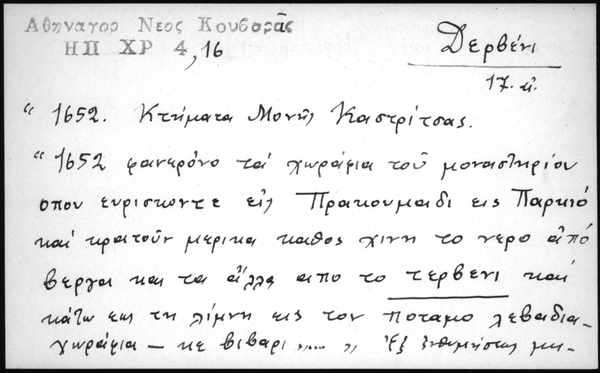 Αθηναγορ Νεος Κουβαρᾶς
ΗΠ ΧΡ 4, 16
Δερβένι
17. αἰ.
" 1652. Κτήματα Μονῆς Καστρίτσας.
"1652 φανερόνο τά χωράφια τοῦ μοναστηρίου
οπου ευρισκοντε εἰς Πρακουμαδι εις Παρκιό
καί κρατοῦν μερικα καθος χινη το νερο ἀπό
βεργα και τα ἄλλα απο το τερβενι καί
κάτω εως τη λίμνη εις τον ποταμο λεβαδια–
χωράφια – κε βιβαρι ,.... " Ἐξ ἐνθυμήσεως